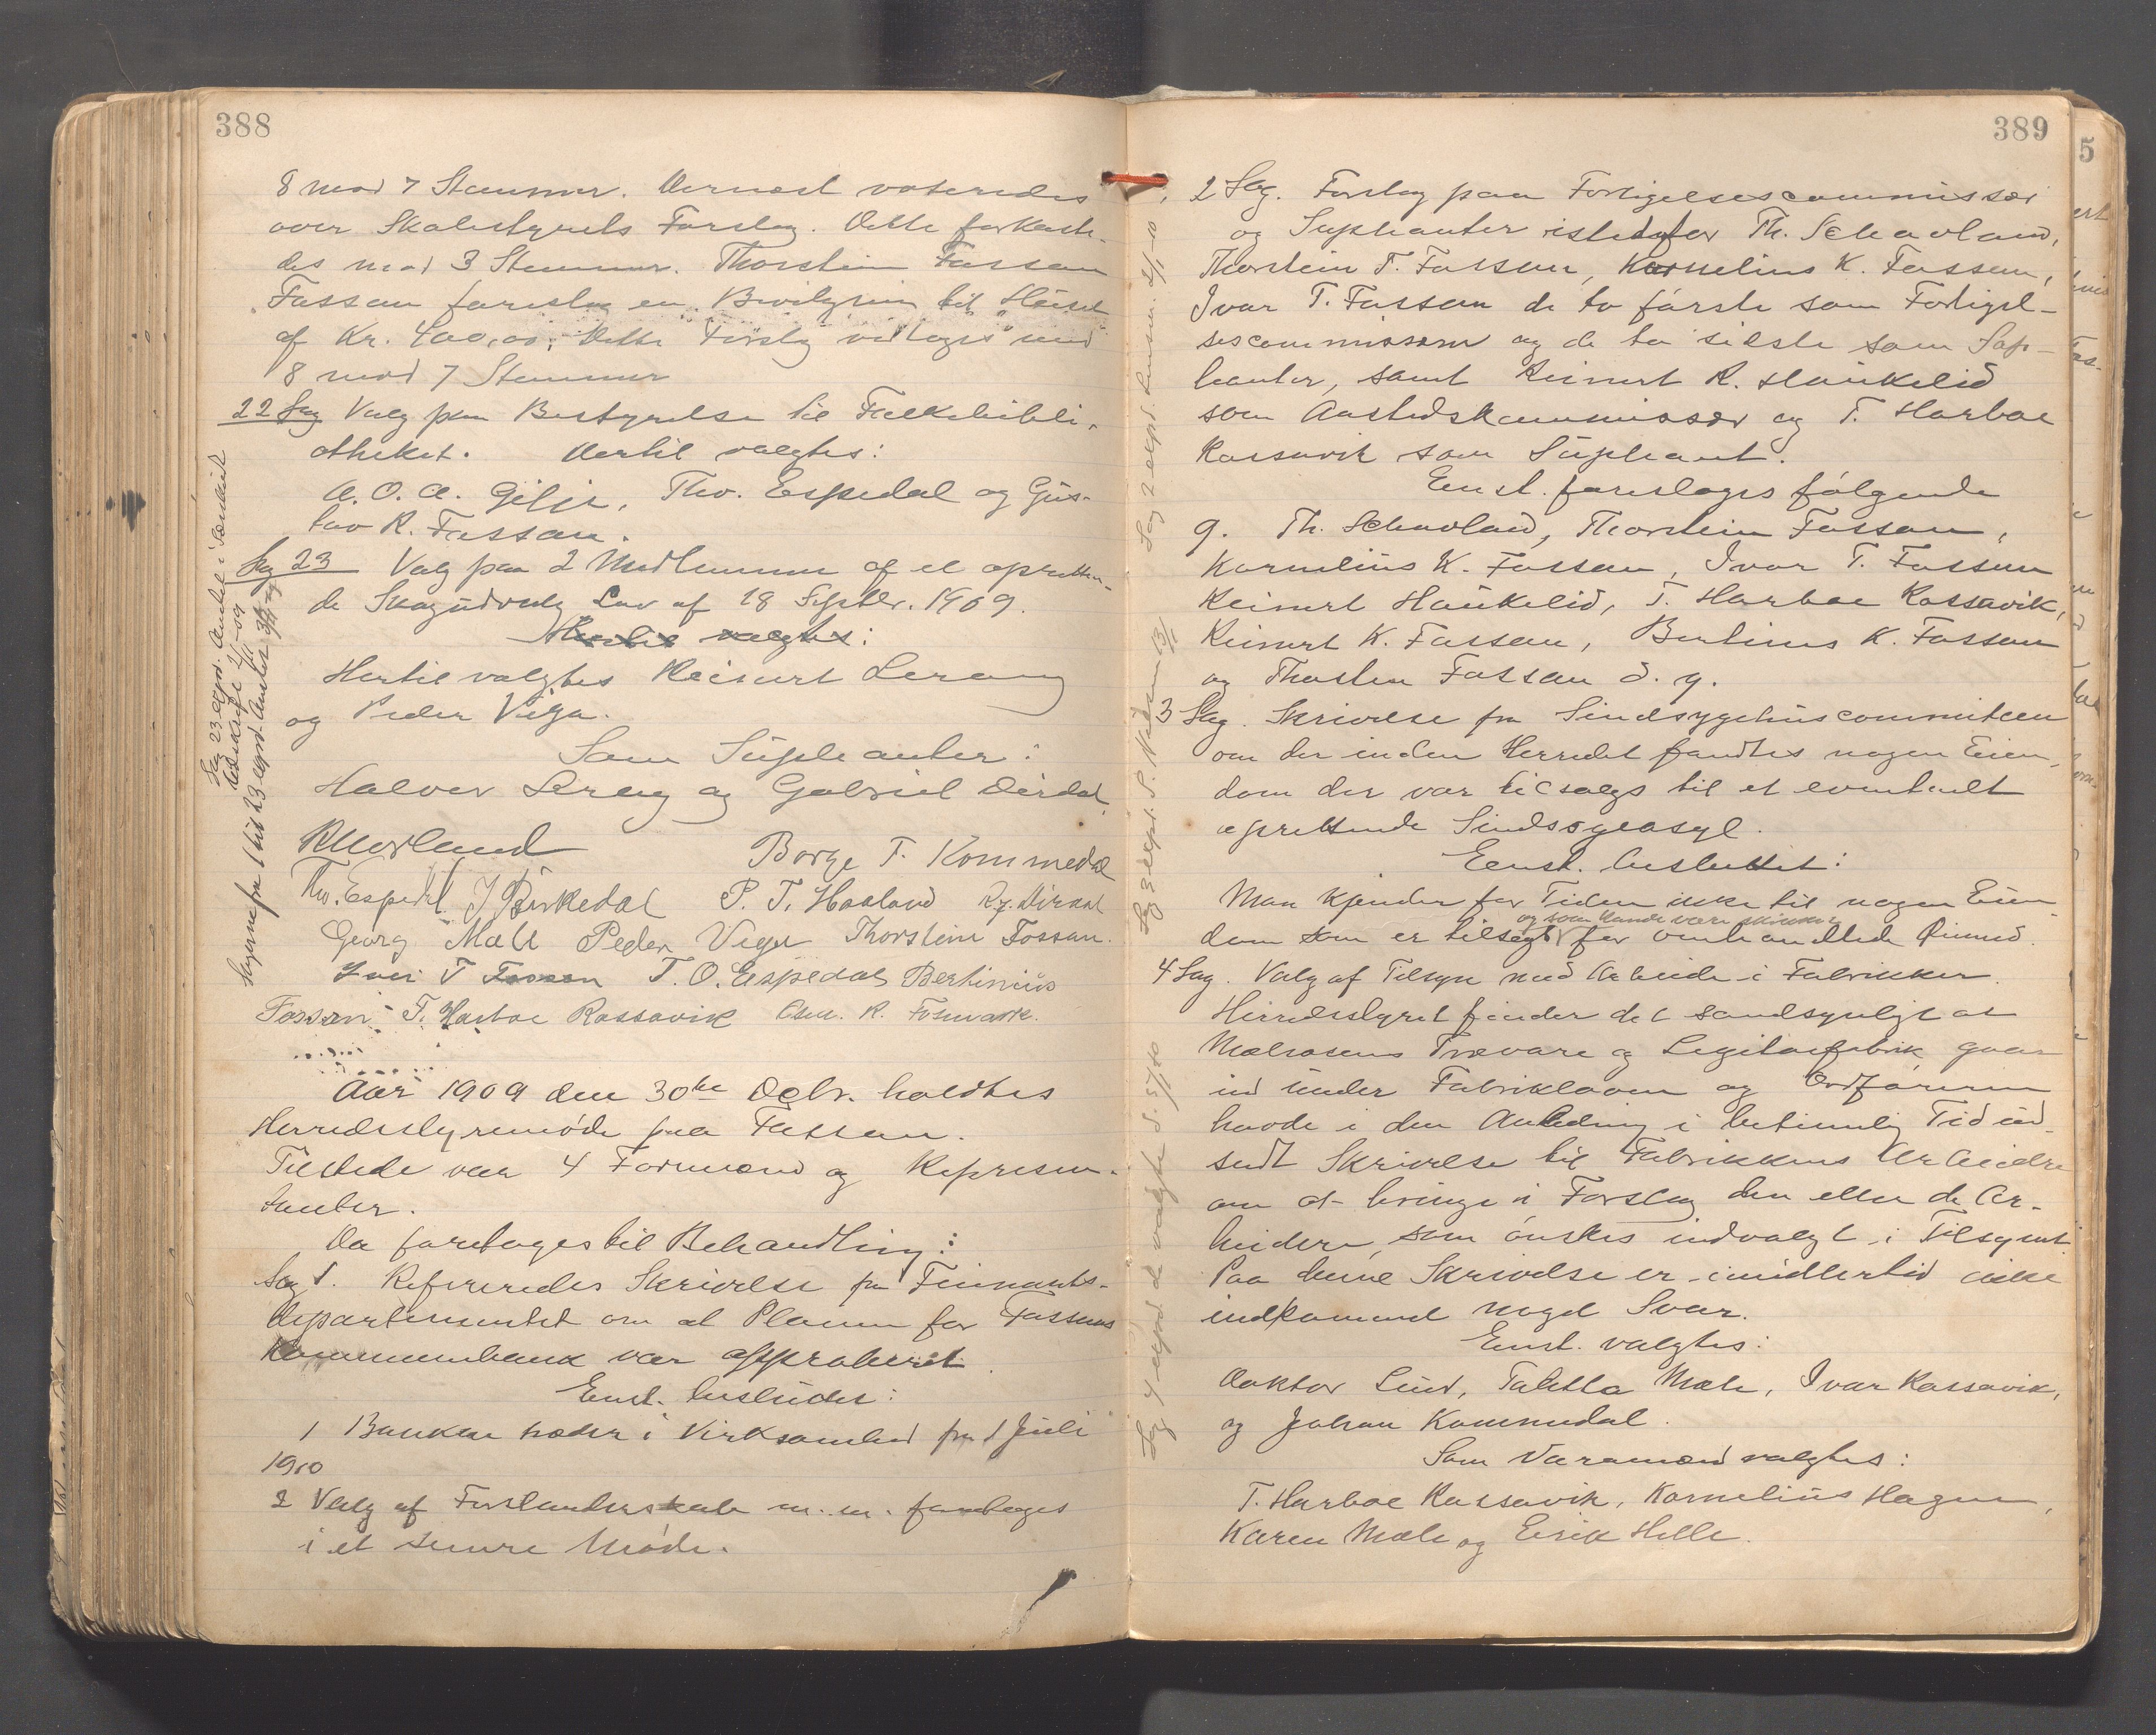 388
8 mod 7 Stemmer. Dernæst voteredes
over Skolestyrets Forslag. Dette forkaste-
des mod 3 Stemmer. Thorstein Fossan
Fossan foreslog en Bevilgning til Huset
af Kr. 400,00. Dette Forslag vedtoges med
8 mod 7 Stemmer
22 Sag Valg paa Bestyrelse til Folkebibli-
otheket. Dertil valgtes:
A. O. A. Gilje, Thv. Espedal og Gus-
tav R. Fossan.
Sag 23 Valg paa 2 Medlemmer af et opretten-
de Skogudvalg Lov af 18 Septbr. 1909.
Hertil valgtes:
Hertil valgtes Reinert Lerang
og Peder Veja.
Som Supleanter:
Halvor Lerang og Gabriel Dirdal
R Morland Borge T. Kommedal
Thv. Espedal J Birkedal P. T. Haaland Rg. Dirdal
Georg Mæle Peder Veja Thorstein Fossan.
Iver T Fossan T. O. Espedal Bertinius
Fossan T. Harboe Rossavik Chr. R. Fosmark.
Aar 1909 den 30te Debr. holdtes
Herredsstyremøde paa Fossan.
Tilstede var 4 Formænd og Represen-
tanter.
Da foretoges til Behandling:
Sag 1. Refereredes Skrivelse fra Finants-
departementet om at Planen for Fossans
Kommunebank var approberet.
Enst. besluttes:
1 Banken træder i Virksomhed fra 1 Juli
1910
2 Valg af Forstanderskab m. m. foretages
i et senere Møde.
Sag 23 expd. Amtet i Landbrugs
selskabet 2/11-09
Sagerne fra 1 til 23 expd. Amtet
389
2 Sag. Forslag paa Forligelsescommissær
og Supleanter istedetfor Th. Schavland,
Thorstein T. Fossan, Kornelius K. Fossan,
Ivar T. Fossan de to første som Forligel-
sescommissærer og de to sidste som Sup-
leanter, samt Reinert R. Haukelid
som Aastedskommissær og T. Harboe
Rossavik som Supleant.
Enst. foresloges følgende
9. Th. Schavland, Thorstein Fossan,
Kornelius K. Fossan, Ivar T. Fossan
Reinert Haukelid, T. Harboe Rossavik,
Reinert K. Fossan, Bertinus K. Fossan
og Thorsten Fossan d. y.
3 Sag. Skrivelse fra Sindsygehuscommiteen
om der inden Herredet fandtes nogen Eien-
dom der var tilsalgs til et eventuelt
oprettende Sindssygeasyl.
Enst. besluttet:
Man kjender for Tiden ikke til nogen Eien-
og som kunde være skikket
dom som er tilsalgs for omhandlede Øiemed.
4 Sag. Valg af Tilsyn med Arbeide i Fabrikker.
Herredsstyret finder det sandsynligt at
Mælsosens Trævare og Legetøifabrik gaar
ind under Fabrikloven og Ordføreren
havde i den Anledning i betimelig Tid ud-
sendt Skrivelse til Fabrikkens Arbeidere
om at bringe i Forslag den eller de Ar-
beidere, som ønskes indvalgt i Tilsynet.
Paa denne Skrivelse er imidlertid ikke
indkommet noget Svar.
Enst. valgtes:
Doktor Lind, Taletta Mæle, Ivar Rossavik,
og Johan Kommedal.
Som Varamænd valgtes:
T. Harboe Rossavik, Kornelius Hagen,
Karen Mæle og Eirik Helle.
Sag 2 expd.
Sag 3 expd. P. Nielsen 13/1
Sag 4 expd. d valgte d. 5/1/10
5